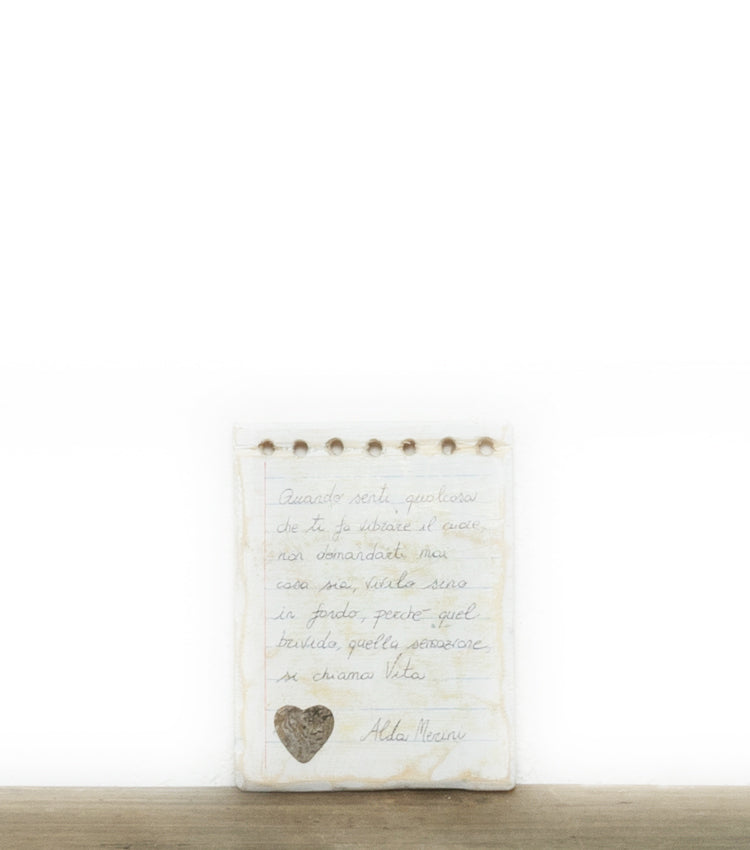 Quando senti qualcosa
che ti fa vibrare il cuore,
non domandarti mai
cosa sia, vivila sino
in fondo, perchè quel
brivido, quella sensazione,
si chiama Vita
Alda Merini